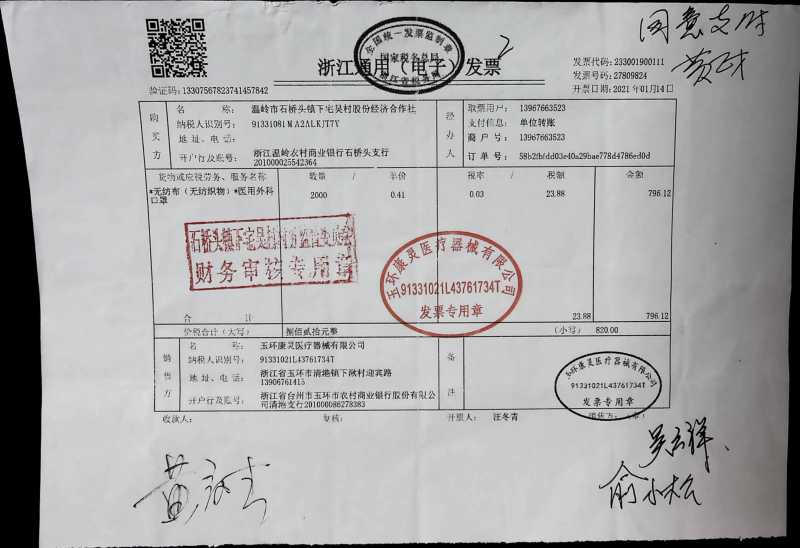 同意支付
2
全国统一发票监制章
国家税务总局
浙江省税务局
浙江通用（电子）发票
发票代码: 233001900111
发票号码: 27809824
开票日期: 2021 年01月14日
验证码: 13307567823741457842
购买方
名 称： 温岭市石桥头镇下宅吴村股份经济合作社
纳税人识别号： 91331081MA2ALKJT7Y
地 址、电 话：
开户行及账号： 浙江温岭农村商业银行石桥头支行
201000025542364
经办人
取票用户： 13967663523
支付信息： 单位转账
商 户 号： 13967663523
订 单 号： 58b2fbfdd03e40a29bae778d4786ed0d
货物或应税劳务、服务名称 数量 / 单价 税率 / 税额 金额
*无纺布（无纺织物）*医用外科口罩 2000 0.41 0.03 23.88 796.12
石桥头镇下宅吴村村务监督委员会
财务审核专用章
玉环康灵医疗器械有限公司
91331021L43761734T
发票专用章
合 计 23.88 796.12
价税合计（大写） 捌佰贰拾元整 (小写) 820.00
销售方
名 称： 玉环康灵医疗器械有限公司
纳税人识别号： 91331021L43761734T
地 址、电 话： 浙江省玉环市清港镇下湫村迎宾路
13906761415
开户行及账号： 浙江省台州市玉环市农村商业银行股份有限公
司清港支行201000086278383
备注
玉环康灵医疗器械有限公司
91331021L43761734T
发票专用章
收款人： 复核： 开票人： 汪冬青
吴云祥
俞小松